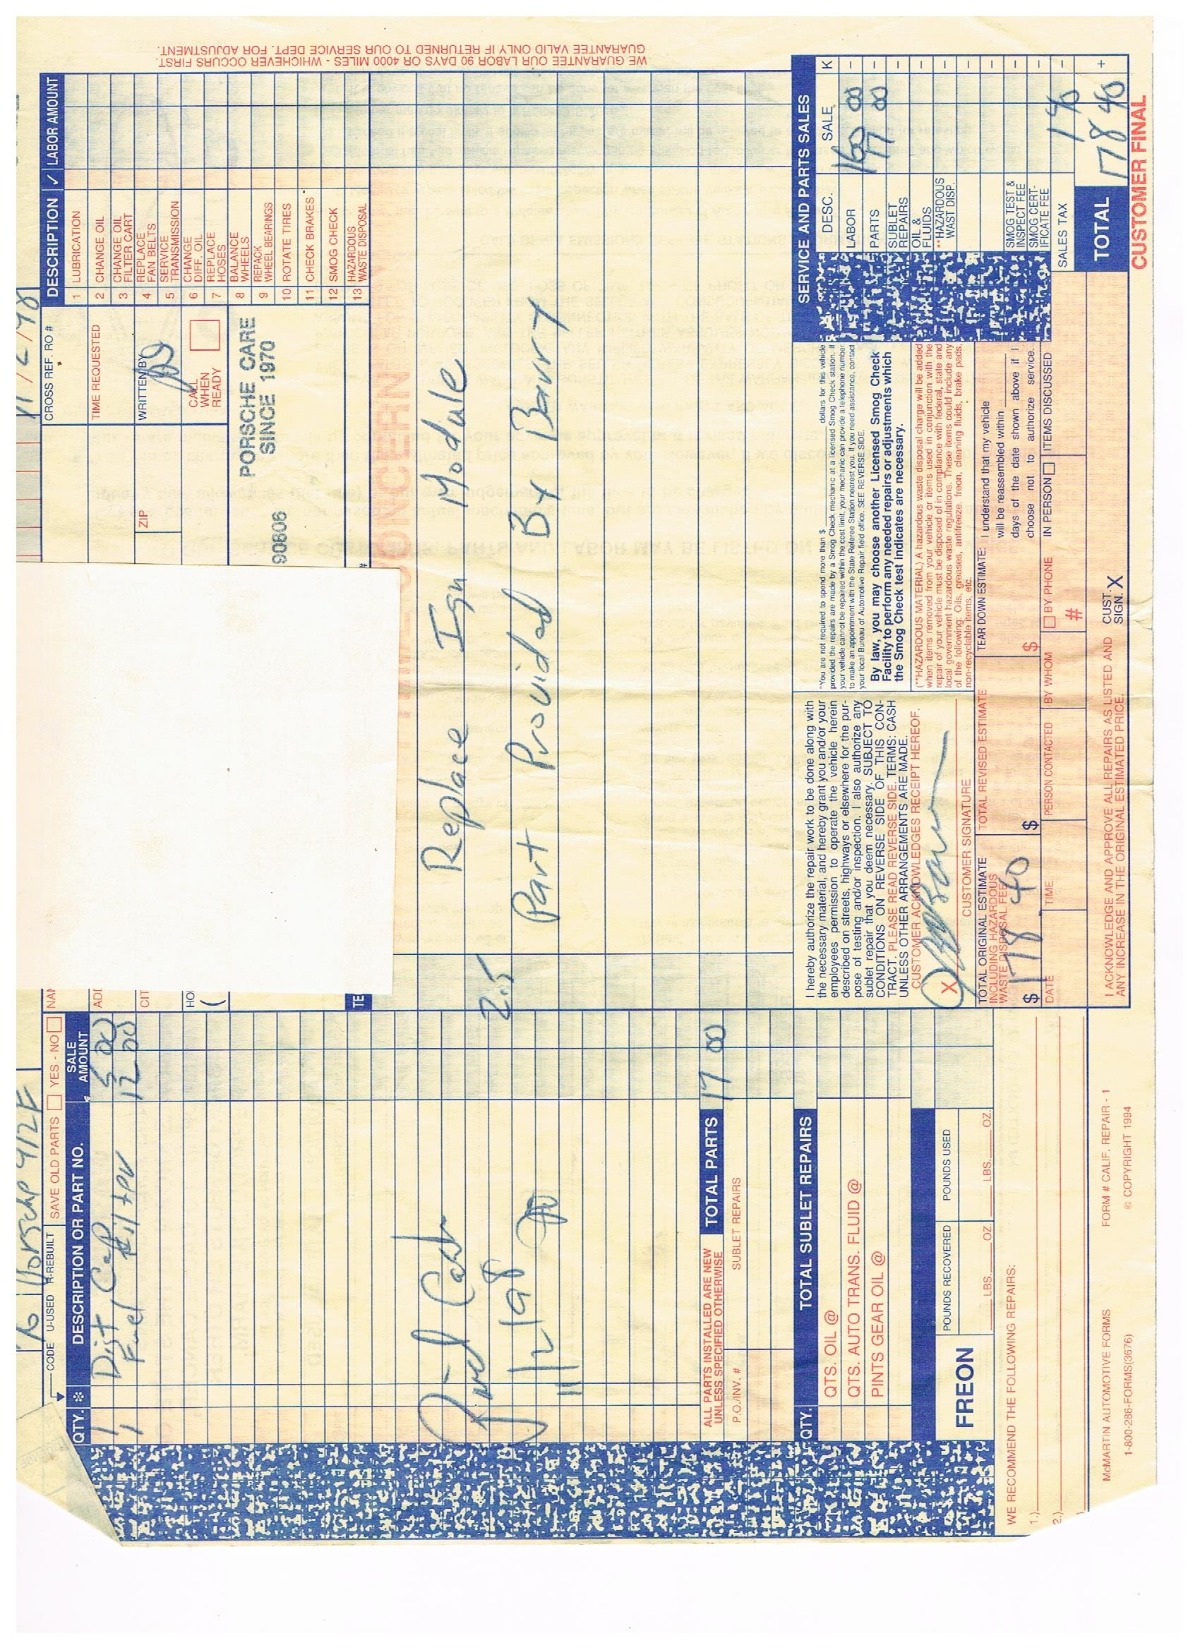 76 Porsche 912E
11/2/98
CODE U-USED R-REBUILT SAVE OLD PARTS YES - NO
QTY. * DESCRIPTION OR PART NO. SALE AMOUNT
1 Dist Cap 5 00
1 Fuel Filter 12 00
Paid Cash
11/2/98
ALL PARTS INSTALLED ARE NEW
UNLESS SPECIFIED OTHERWISE
TOTAL PARTS 17 00
P.O./INV. # SUBLET REPAIRS
QTY. TOTAL SUBLET REPAIRS
QTS. OIL @
QTS. AUTO TRANS. FLUID @
PINTS GEAR OIL @
FREON
POUNDS RECOVERED POUNDS USED
LBS. OZ. LBS. OZ.
WE RECOMMEND THE FOLLOWING REPAIRS:
1.)
2.)
McMARTIN AUTOMOTIVE FORMS FORM # CALIF. REPAIR - 1
1-800-286-FORMS(3676) © COPYRIGHT 1994
CROSS REF. RO #
TIME REQUESTED
WRITTEN BY
ZIP
CALL
WHEN
READY
PORSCHE CARE
SINCE 1970
90806
DESCRIPTION ✓ LABOR AMOUNT
1 LUBRICATION
2 CHANGE OIL
3 CHANGE OIL FILTER CART
4 REPLACE FAN BELTS
5 SERVICE TRANSMISSION
6 CHANGE DIFF. OIL
7 REPLACE HOSES
8 BALANCE WHEELS
9 REPACK WHEEL BEARINGS
10 ROTATE TIRES
11 CHECK BRAKES
12 SMOG CHECK
13 HAZARDOUS WASTE DISPOSAL
Replace Ign Module
2.5
Part Provided By Barry
WE GUARANTEE OUR LABOR 90 DAYS OR 4000 MILES - WHICHEVER OCCURS FIRST.
GUARANTEE VALID ONLY IF RETURNED TO OUR SERVICE DEPT. FOR ADJUSTMENT.
I hereby authorize the repair work to be done along with
the necessary material, and hereby grant you and/or your
employees permission to operate the vehicle herein
described on streets, highways or elsewhere for the pur-
pose of testing and/or inspection. I also authorize any
sublet repair that you deem necessary. SUBJECT TO
CONDITIONS ON REVERSE SIDE OF THIS CON-
TRACT. PLEASE READ REVERSE SIDE. TERMS: CASH
UNLESS OTHER ARRANGEMENTS ARE MADE.
CUSTOMER ACKNOWLEDGES RECEIPT HEREOF.
X
CUSTOMER SIGNATURE
"You are not required to spend more than $ dollars for this vehicle
provided the repairs are made by a Smog Check mechanic at a licensed Smog Check station. If
your vehicle cannot be repaired within the cost limit, your mechanic can provide a telephone number
to make an appointment with the State Referee Station nearest you. If you need assistance, contact
your local Bureau of Automotive Repair field office. SEE REVERSE SIDE.
By law, you may choose another Licensed Smog Check
Facility to perform any needed repairs or adjustments which
the Smog Check test indicates are necessary.
(**HAZARDOUS MATERIAL) A hazardous waste disposal charge will be added
when items removed from your vehicle or items used in conjunction with the
repair of your vehicle must be disposed of in compliance with federal, state and
local government hazardous waste regulations. These items could include any
of the following: Oils, greases, antifreeze, freon, cleaning fluids, brake pads,
non-recyclable items, etc.
SERVICE AND PARTS SALES
DESC. SALE K
LABOR 160 00
PARTS 17 00
SUBLET REPAIRS
OIL & FLUIDS
**HAZARDOUS WASTE DISP.
SMOG TEST & INSPECT FEE
SMOG CERT-IFICATE FEE
SALES TAX 1 40
TOTAL 178 40
CUSTOMER FINAL
TOTAL ORIGINAL ESTIMATE
INCLUDING HAZARDOUS
WASTE DISPOSAL FEE
$ 178 40
TOTAL REVISED ESTIMATE
$
TEAR DOWN ESTIMATE: I understand that my vehicle
will be reassembled within
days of the date shown above if I
choose not to authorize service.
$
DATE TIME PERSON CONTACTED BY WHOM BY PHONE IN PERSON ITEMS DISCUSSED
#
I ACKNOWLEDGE AND APPROVE ALL REPAIRS AS LISTED AND
ANY INCREASE IN THE ORIGINAL ESTIMATED PRICE.
CUST. SIGN. X